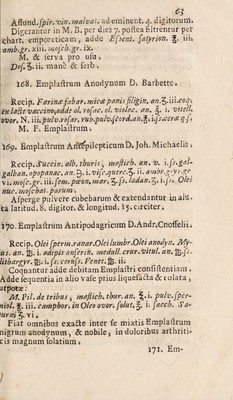 63
Affund. spir. vin. malvat. ad eminent. 4. digitorum.
Digerantur in M. B. per dies 7. postea filtrentur per
chart. emporeticam, adde Essent. satyrion. ℥. iii.
amb. gr. xiii. mosch. gr. ix.
M. & serva pro usu.
Dos. ʒ. i. manè & serò.
168. Emplastrum Anodynum D. Barbette.
Recip. Farinæ fabar. micæ panis siligin. an. ℥. iii. coq.
ex lacte vaccino, adde ol. rosac. ol. violac. an. ℥. i. vitell.
ovor. N. iii. pulv. rosar. rub. pulv. scord. an. ℥. i. ß. ceræ q. s.
M. F. Emplastrum.
169. Emplastrum Antiepilepticum D. Joh. Michaelis.
Recip. Succin. alb. thuris, mastich. an.
galban. opopanac. an. ℈. i. visc. querc. ℥. ii. ambr. g. vi. gr.
vi. mosc. gr. iii. sem. pæon. mar. ʒ. ß. ladan. ʒ. i. ß. Olei
nuc. moschat. parum.
Asperge pulvere cubebarum & extendantur in alu-
ta latitud. 8. digitor. & longitud. 15. circiter.
170. Emplastrum Antipodagricum D. Andr. Cnoffelii.
Recip. Olei sperm. ranar. Olei lumbr. Olei anodyn. My-
an. ℔. i. adipis anserin. medull. crur. vitul. an. ℔. ß.
lithargyr. ℔. i. ß. ceruss. Venet. ℔. ii.
Coquantur adde debitam Emplastri consistentiam.
Adde sequentia in alio vase prius liquefacta & colata,
utpote:
M. Pil. de tribus, mastich. thur. an. ℥. i. pulv. sper-
niol. ℥. iii. camphor. in Oleo ovor. solut. ℥. i. sacch. Sa-
turni ℥. vi.
Fiat omnibus exacte inter se mixtis Emplastrum
nigrum anodynum, & nobile, in doloribus arthriti-
cis magnum solatium.
171. Em-